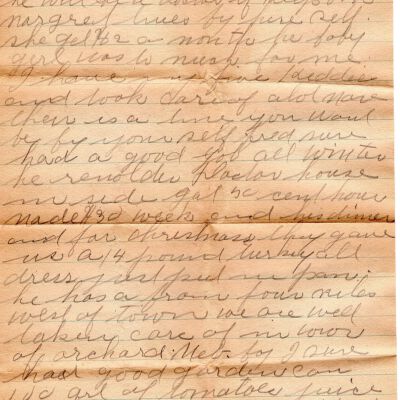 margret lives by her self.
she get $52 a month the baby
girl was to much for me.
I have my five kiddies
and took care of alot more
there is a time you want
be by your self Fred sure
had a good job all winter
he remolded Doctor house
in side got 50 cent hour
made $30 week and his dinner
and for christmass they gave
us a 14 pound turkey all
dress just put in pan.
he has a from four miles
west of town we are well
taken care of in town
of orchard. Neb. boy I sure
had good garden can
qt of tomatoes juice